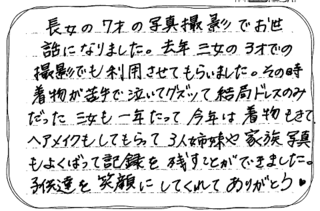 長女の7才の写真撮影でお世
話になりました。去年三女の3才での
撮影でも利用させてもらいました。その時
着物が苦手で泣いてグズッて結局ドレスのみ
だった三女も一年たって今年は着物もきて
ヘアメイクもしてもらって3人姉妹や家族写真
もよくばって記録を残すことができました。
子供達を笑顔にしてくれてありがとう♥